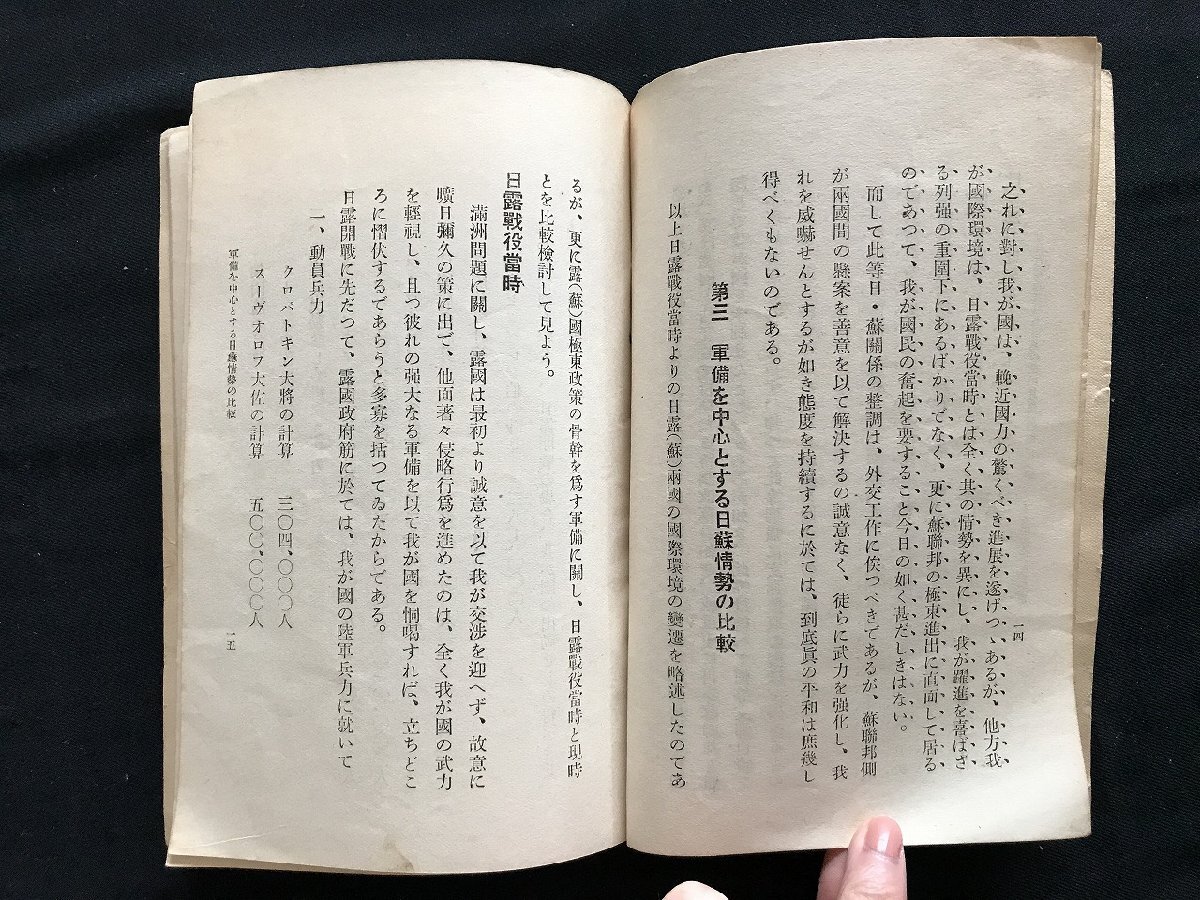 一四
之れに對し我が國は、輓近國力の驚くべき進展を遂げつゝあるが、他方我
が國際環境は、日露戰役當時とは全く其の情勢を異にし、我が躍進を喜ばざ
る列强の重圍下にあるばかりでなく、更に蘇聯邦の極東進出に直面して居る
のであつて、我が國民の奮起を要すること今日の如く甚だしきはない。
而して此等日・蘇關係の整調は、外交工作に俟つべきであるが、蘇聯邦側
が兩國間の懸案を善意を以て解決するの誠意なく、徒らに武力を强化し、我
れを威嚇せんとするが如き態度を持續するに於ては、到底眞の平和は庶幾し
得べくもないのである。
第三 軍備を中心とする日蘇情勢の比較
以上日露戰役當時よりの日露(蘇)兩國の國際環境の變遷を略述したのであ
るが、更に露(蘇)國極東政策の骨幹を爲す軍備に關し、日露戰役當時と現時
とを比較檢討して見よう。
日露戰役當時
滿洲問題に關し、露國は最初より誠意を以て我が交涉を迎へず、故意に
曠日彌久の策に出で、他面著々侵略行爲を進めたのは、全く我が國の武力
を輕視し、且つ彼れの强大なる軍備を以て我が國を恫喝すれば、立ちどこ
ろに慴伏するであらうと多寡を括つてゐたからである。
日露開戰に先だつて、露國政府筋に於ては、我が國の陸軍兵力に就いて
一、動員兵力
クロパトキン大將の計算 三〇四、〇〇〇人
スーヴオロフ大佐の計算 五〇〇、〇〇〇人
軍備を中心とする日蘇情勢の比較
一五